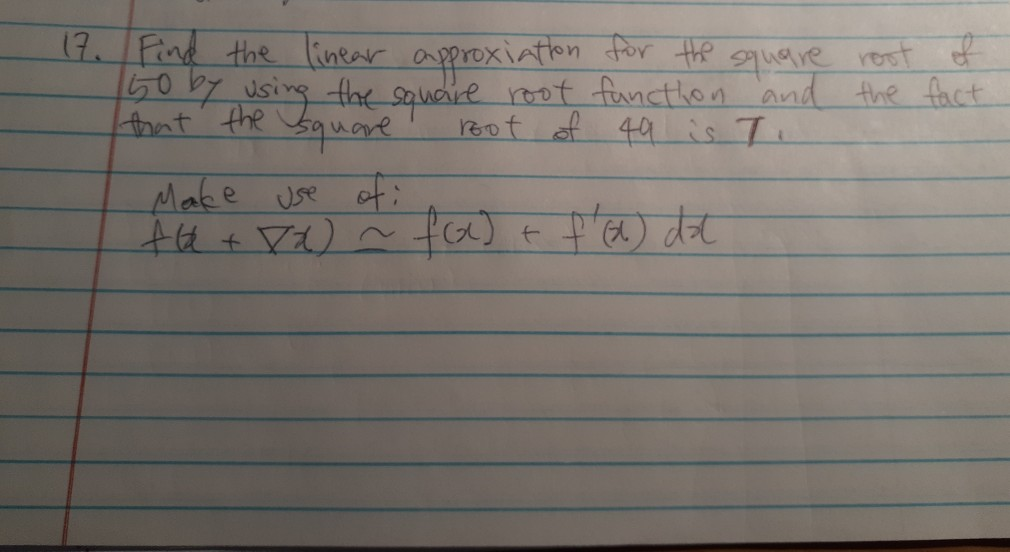 17. Find the linear approxiation for the square root of
50 by using the square root function and the fact
that the square root of 49 is 7.
Make use of:
f(x + ∇x) ~ f(x) + f'(x) dx